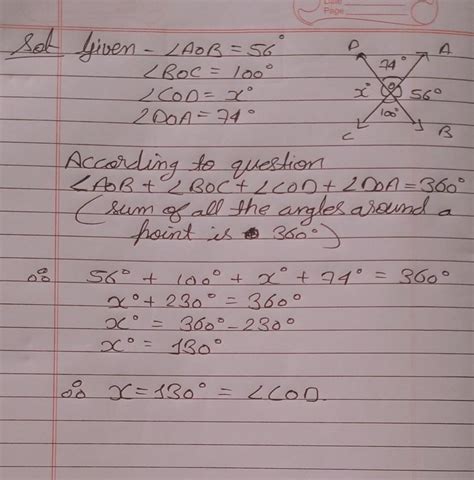 Date
Page
Sol Given - ∠AOB = 56°
∠BOC = 100°
∠COD = x°
∠DOA = 74°
D
A
74°
x°
O
56°
100°
C
B
According to question
∠AOB + ∠BOC + ∠COD + ∠DOA = 360°
(sum of all the angles around a
point is 360°)
∴ 56° + 100° + x° + 74° = 360°
x° + 230° = 360°
x° = 360° - 230°
x° = 130°
∴ x = 130° = ∠COD.